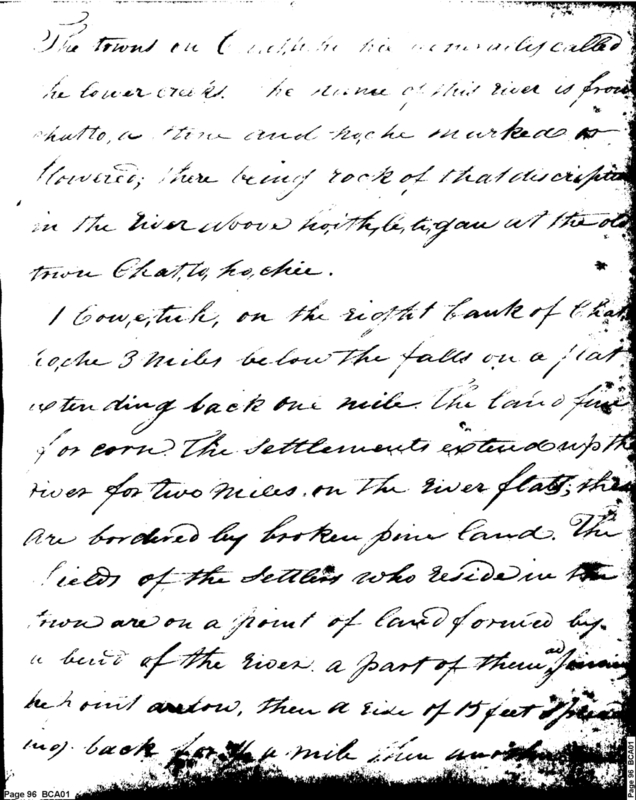 The towns on generally called
he lower creeks. he name of this river is from
hatto, a stone and ho,che marked or
flowered; there being rock of that description
in the river above ho,ith,le,ti,gau at the old
town Chat,to,ho,chee.
1 Cow,e,tuh, on the right bank of Chat
ho,che 3 miles below the falls on a flat
extending back one mile. The land fine
for corn. The settlements extend up the
river for two miles on the river flats; these
are bordered by broken pine land. The
fields of the settlers who reside in the
town are on a point of land formed by
a bend of the river. a part of them ad
he point low, then a rise of 15 feet spread
ing back for a mile then
Page 96 BCA01
Page 96 BCA01